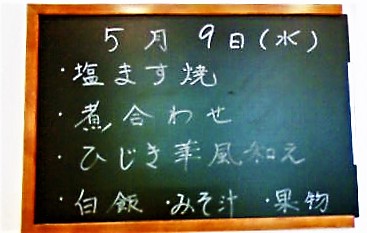 5月9日(水)
・塩ます焼
・煮合わせ
・ひじき華風和え
・白飯 ・みそ汁 ・果物